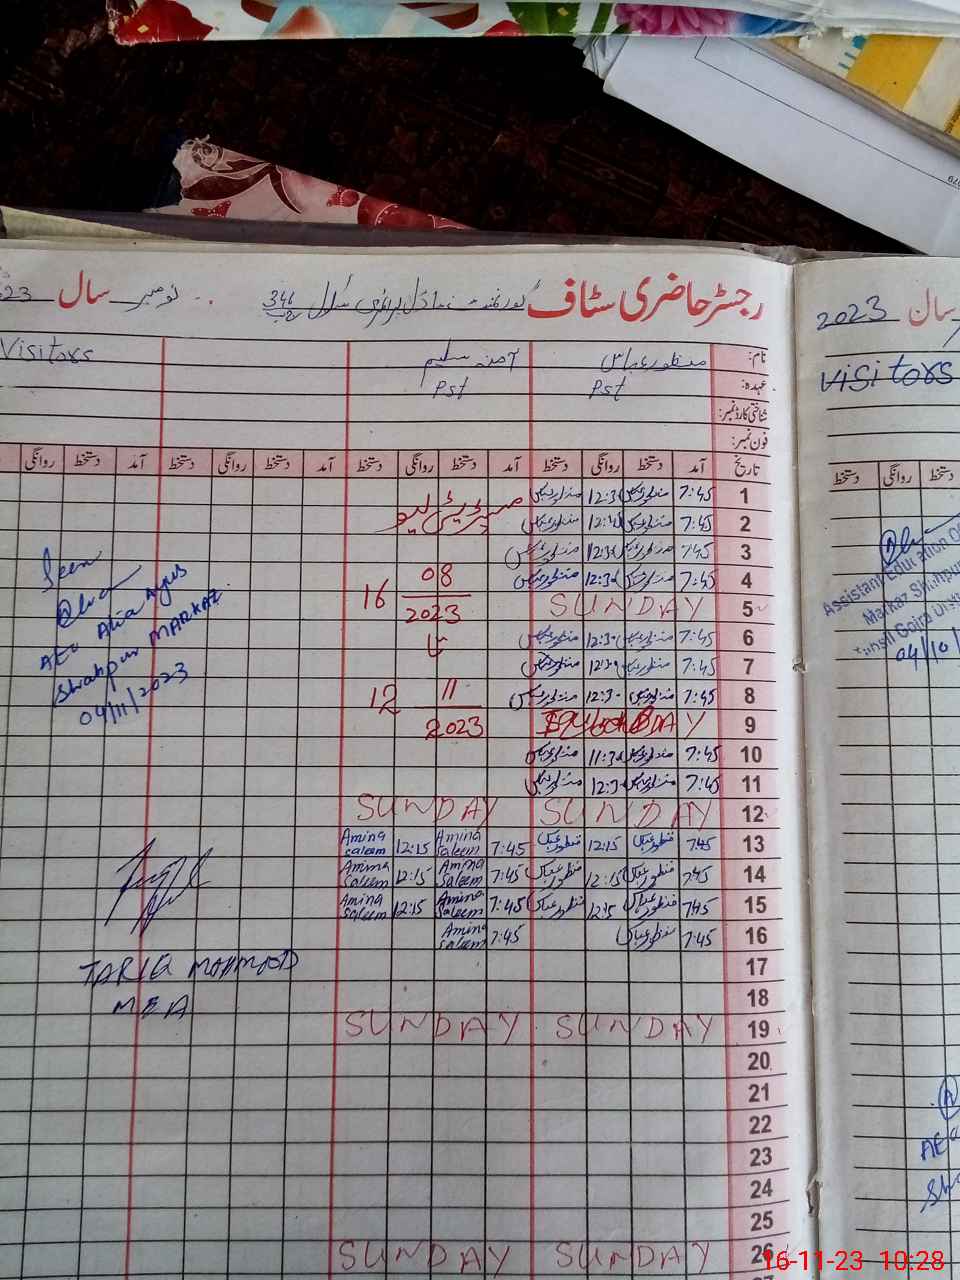 رجسٹر حاضری سٹاف گورنمنٹ ماڈل پرائمری سکول 346 ج ب نومبر سال 2023
نام: منظور عباس آمنہ سلیم Visitors
عہدہ: Pst Pst
شناختی کارڈ نمبر:
فون نمبر:
تاریخ آمد دستخط روانگی دستخط آمد دستخط روانگی دستخط آمد دستخط روانگی دستخط آمد دستخط روانگی
1 7:45 منظور عباس 12:30 منظور عباس
2 7:45 منظور عباس منظور عباس
3 7:45 منظور عباس 12:30 منظور عباس
4 7:45 منظور عباس 12:30 منظور عباس
5 SUNDAY
6 7:45 منظور عباس 12:30 منظور عباس
7 7:45 منظور عباس 12:30 منظور عباس
8 7:45 منظور عباس 12:30 منظور عباس
9
10 7:45 منظور عباس 11:30 منظور عباس
11 7:45 منظور عباس 12:30 منظور عباس
12 SUNDAY SUNDAY
13 7:45 منظور عباس 12:15 منظور عباس 7:45 Amina saleem 12:15 Amina saleem
14 7:45 منظور عباس 12:15 منظور عباس 7:45 Amina saleem 12:15 Amina saleem
15 7:45 منظور عباس 12:15 منظور عباس 7:45 Amina saleem 12:15 Amina saleem
16 7:45 منظور عباس 7:45 Amina saleem
17
18
19 SUNDAY SUNDAY
20
21
22
23
24
25
26 SUNDAY SUNDAY
میٹرنٹی لیو
16 08
2023
تا
12 11
2023
Seen
AEO Alia Ayub
Shahpur MARKAZ
04/11/2023
TARIQ MAHMOOD
MEA
سال 2023
Visitors
دستخط روانگی دستخط
Assistant Education Of
Markaz Shahpur
Tehsil Gojra Dist
04/10/
AEO
Sha
16-11-23 10:28